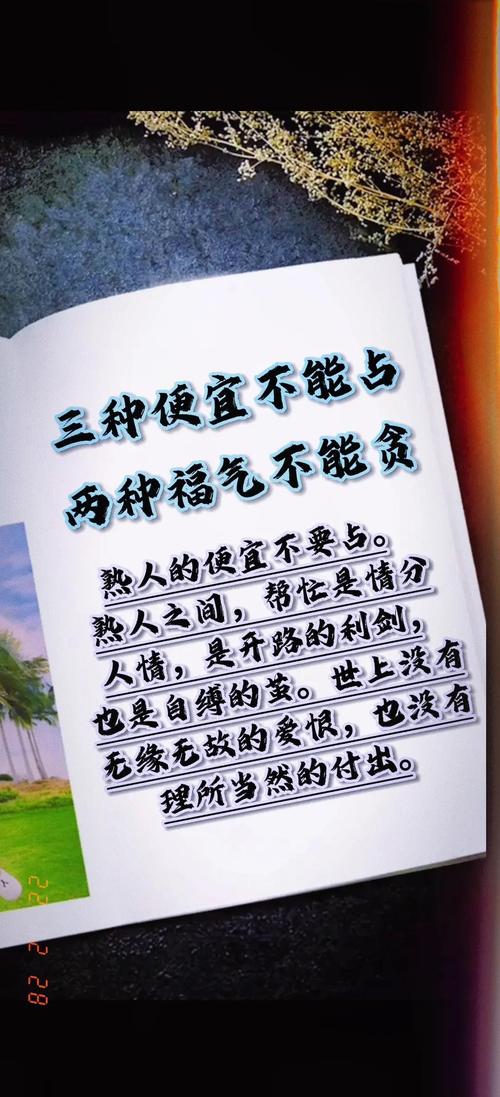 三种便宜不能占
两种福气不能贪
熟人的便宜不要占。
熟人之间，帮忙是情分
人情，是开路的利剑，
也是自缚的茧。世上没有
无缘无故的爱恨，也没有
理所当然的付出。
22 2 28